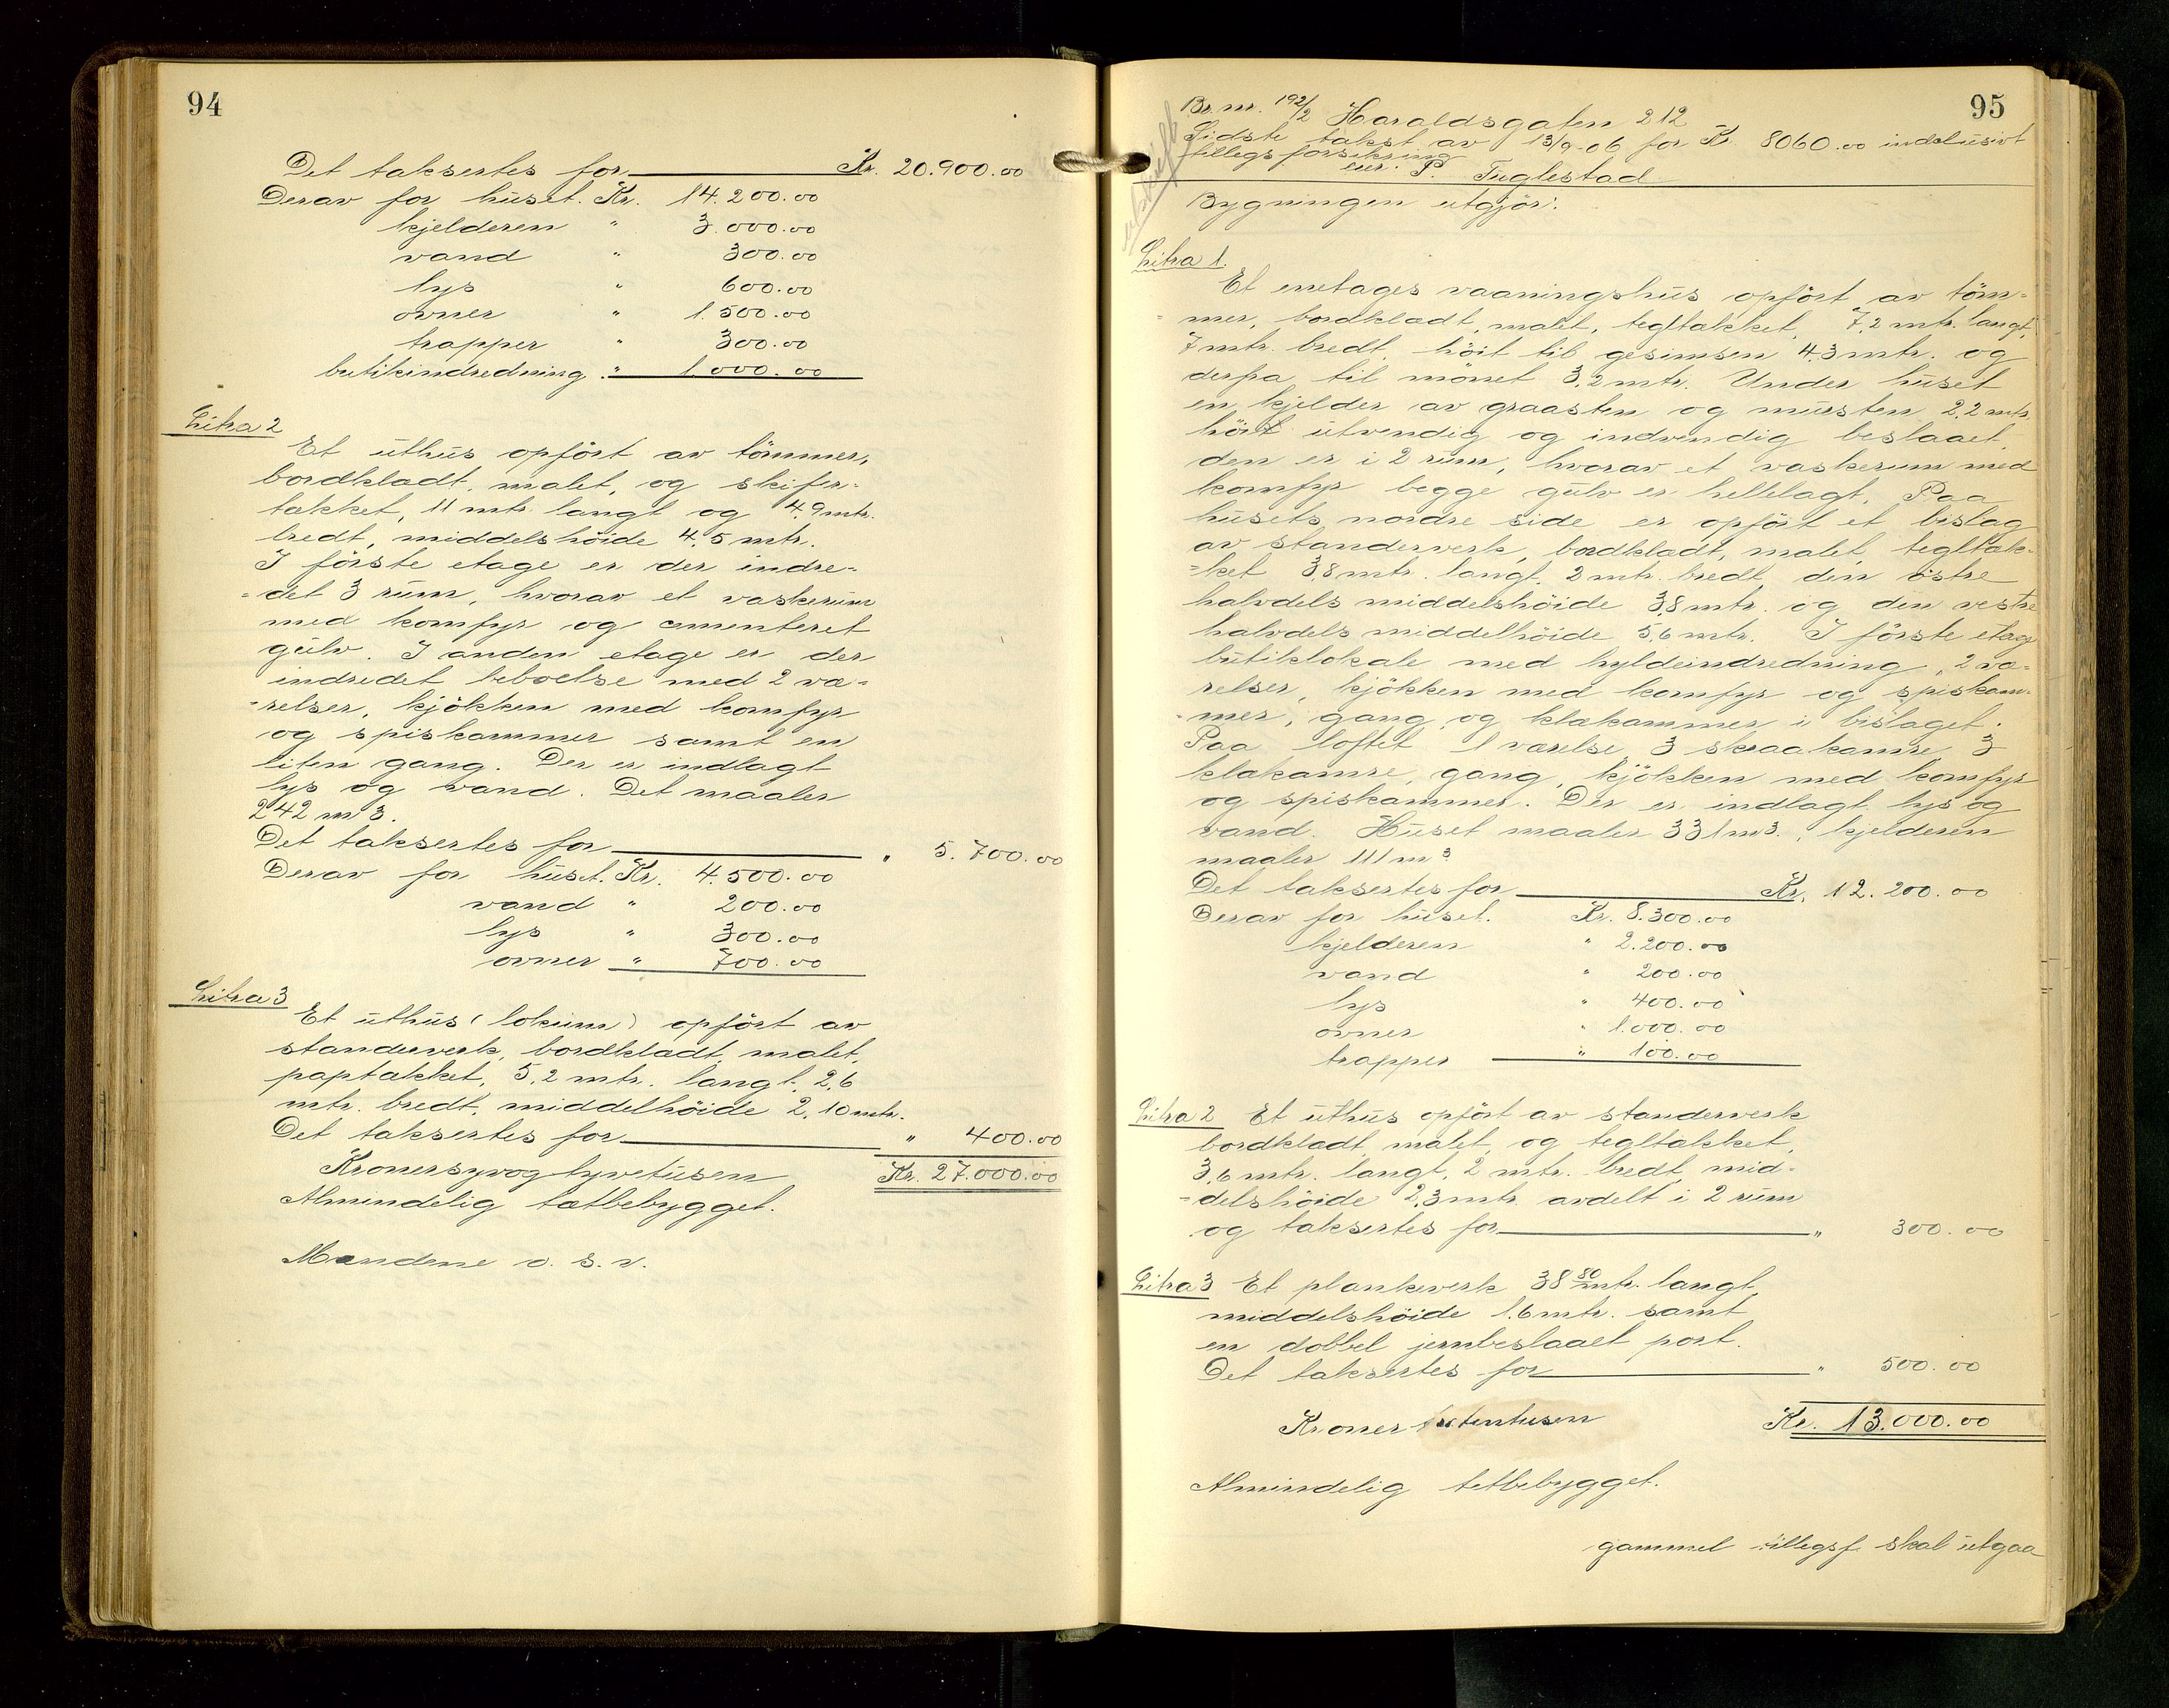 94
Det taksertes for Kr. 20.900.00
Derav for huset. Kr. 14.200.00
kjelderen " 3.000.00
vand " 300.00
lys " 600.00
ovner " 1.500.00
trapper " 300.00
butikindredning " 1.000.00
Litra 2
Et uthus opfört av tömmer,
bordklædt, malet, og skifer-
tækket, 11 mtr. langt og 4,9 mtr.
bredt, middelshöide 4,5 mtr.
I förste etage er der indre-
=det 3 rum, hvorav et vaskerum
med komfyr og cementeret
gulv. I anden etage er der
indredet beboelse med 2 væ-
-relser, kjökken med komfyr
og spiskammer samt en
liten gang. Der er indlagt
lys og vand. Det maaler
242 m3.
Det taksertes for " 5.700.00
Derav for huset. Kr. 4.500.00
vand " 200.00
lys " 300.00
ovner " 700.00
Litra 3
Et uthus (lokum) opfört av
standerverk, bordklædt, malet,
paptækket, 5,2 mtr. langt, 2,6
mtr. bredt, middelhöide 2,10 mtr.
Det taksertes for " 400.00
Kroner syvogtyvetusen Kr. 27.000.00
Almindelig tætbebygget.
Mændene o. s. v.
95
Br. nr. 192/2 Haraldsgaten 212
Sidste takst av 13/9-06 for Kr. 8060.00 indclusivt
tillegs forsikring
eier: P. Fuglestad
Bygningen utgjör:
Litra 1.
Et enetages vaaningshus opfört av töm-
=mer, bordklædt, malet, tegltækket, 7,2 mtr. langt,
7 mtr. bredt, höit til gesimsen 4,3 mtr. og
derfra til mönet 3,2 mtr. Under huset
en kjelder av graasten og mursten 2,2 mtr
höit utvendig og indvendig beslaaet,
den er i 2 rum, hvorav et vaskerum med
komfyr begge gulv er hellelagt. Paa
husets nordre side er opfört et bislag
av standerverk, bordklædt, malet, tegltæk-
=ket 3,8 mtr. langt, 2 mtr. bredt, den östre
halvdels middelshöide 3,8 mtr. og den vestre
halvdels middelhöide 5,6 mtr. I förste etag
butiklokale med hyldeindredning, 2 væ-
relser, kjökken med komfyr og spiskam-
-mer, gang og klækammer i bislaget.
Paa loftet 1 værelse, 3 skraakamre, 3
klækamre, gang, kjökken med komfyr
og spiskammer. Der er indlagt lys og
vand. Huset maaler 331 m3., kjelderen
maaler 111 m3
Det taksertes for Kr. 12.200.00
Derav for huset. Kr. 8.300.00
kjelderen " 2.200.00
vand " 200.00
lys " 400.00
ovner " 1.000.00
trapper " 100.00
Litra 2 Et uthus opfört av standerverk
bordklædt, malet, og tegltækket,
3,6 mtr. langt, 2 mtr. bredt, mid-
-delshöide 2,3 mtr. avdelt i 2 rum
og taksertes for " 300.00
Litra 3 Et plankeverk 38 80 mtr. langt,
middelshöide 1,6 mtr. samt
en dobbel jernbeslaaet port.
Det taksertes for " 500.00
Kroner trettentusen Kr. 13.000.00
Almindelig tetbebygget.
gammel tillegsf. skal utgaa